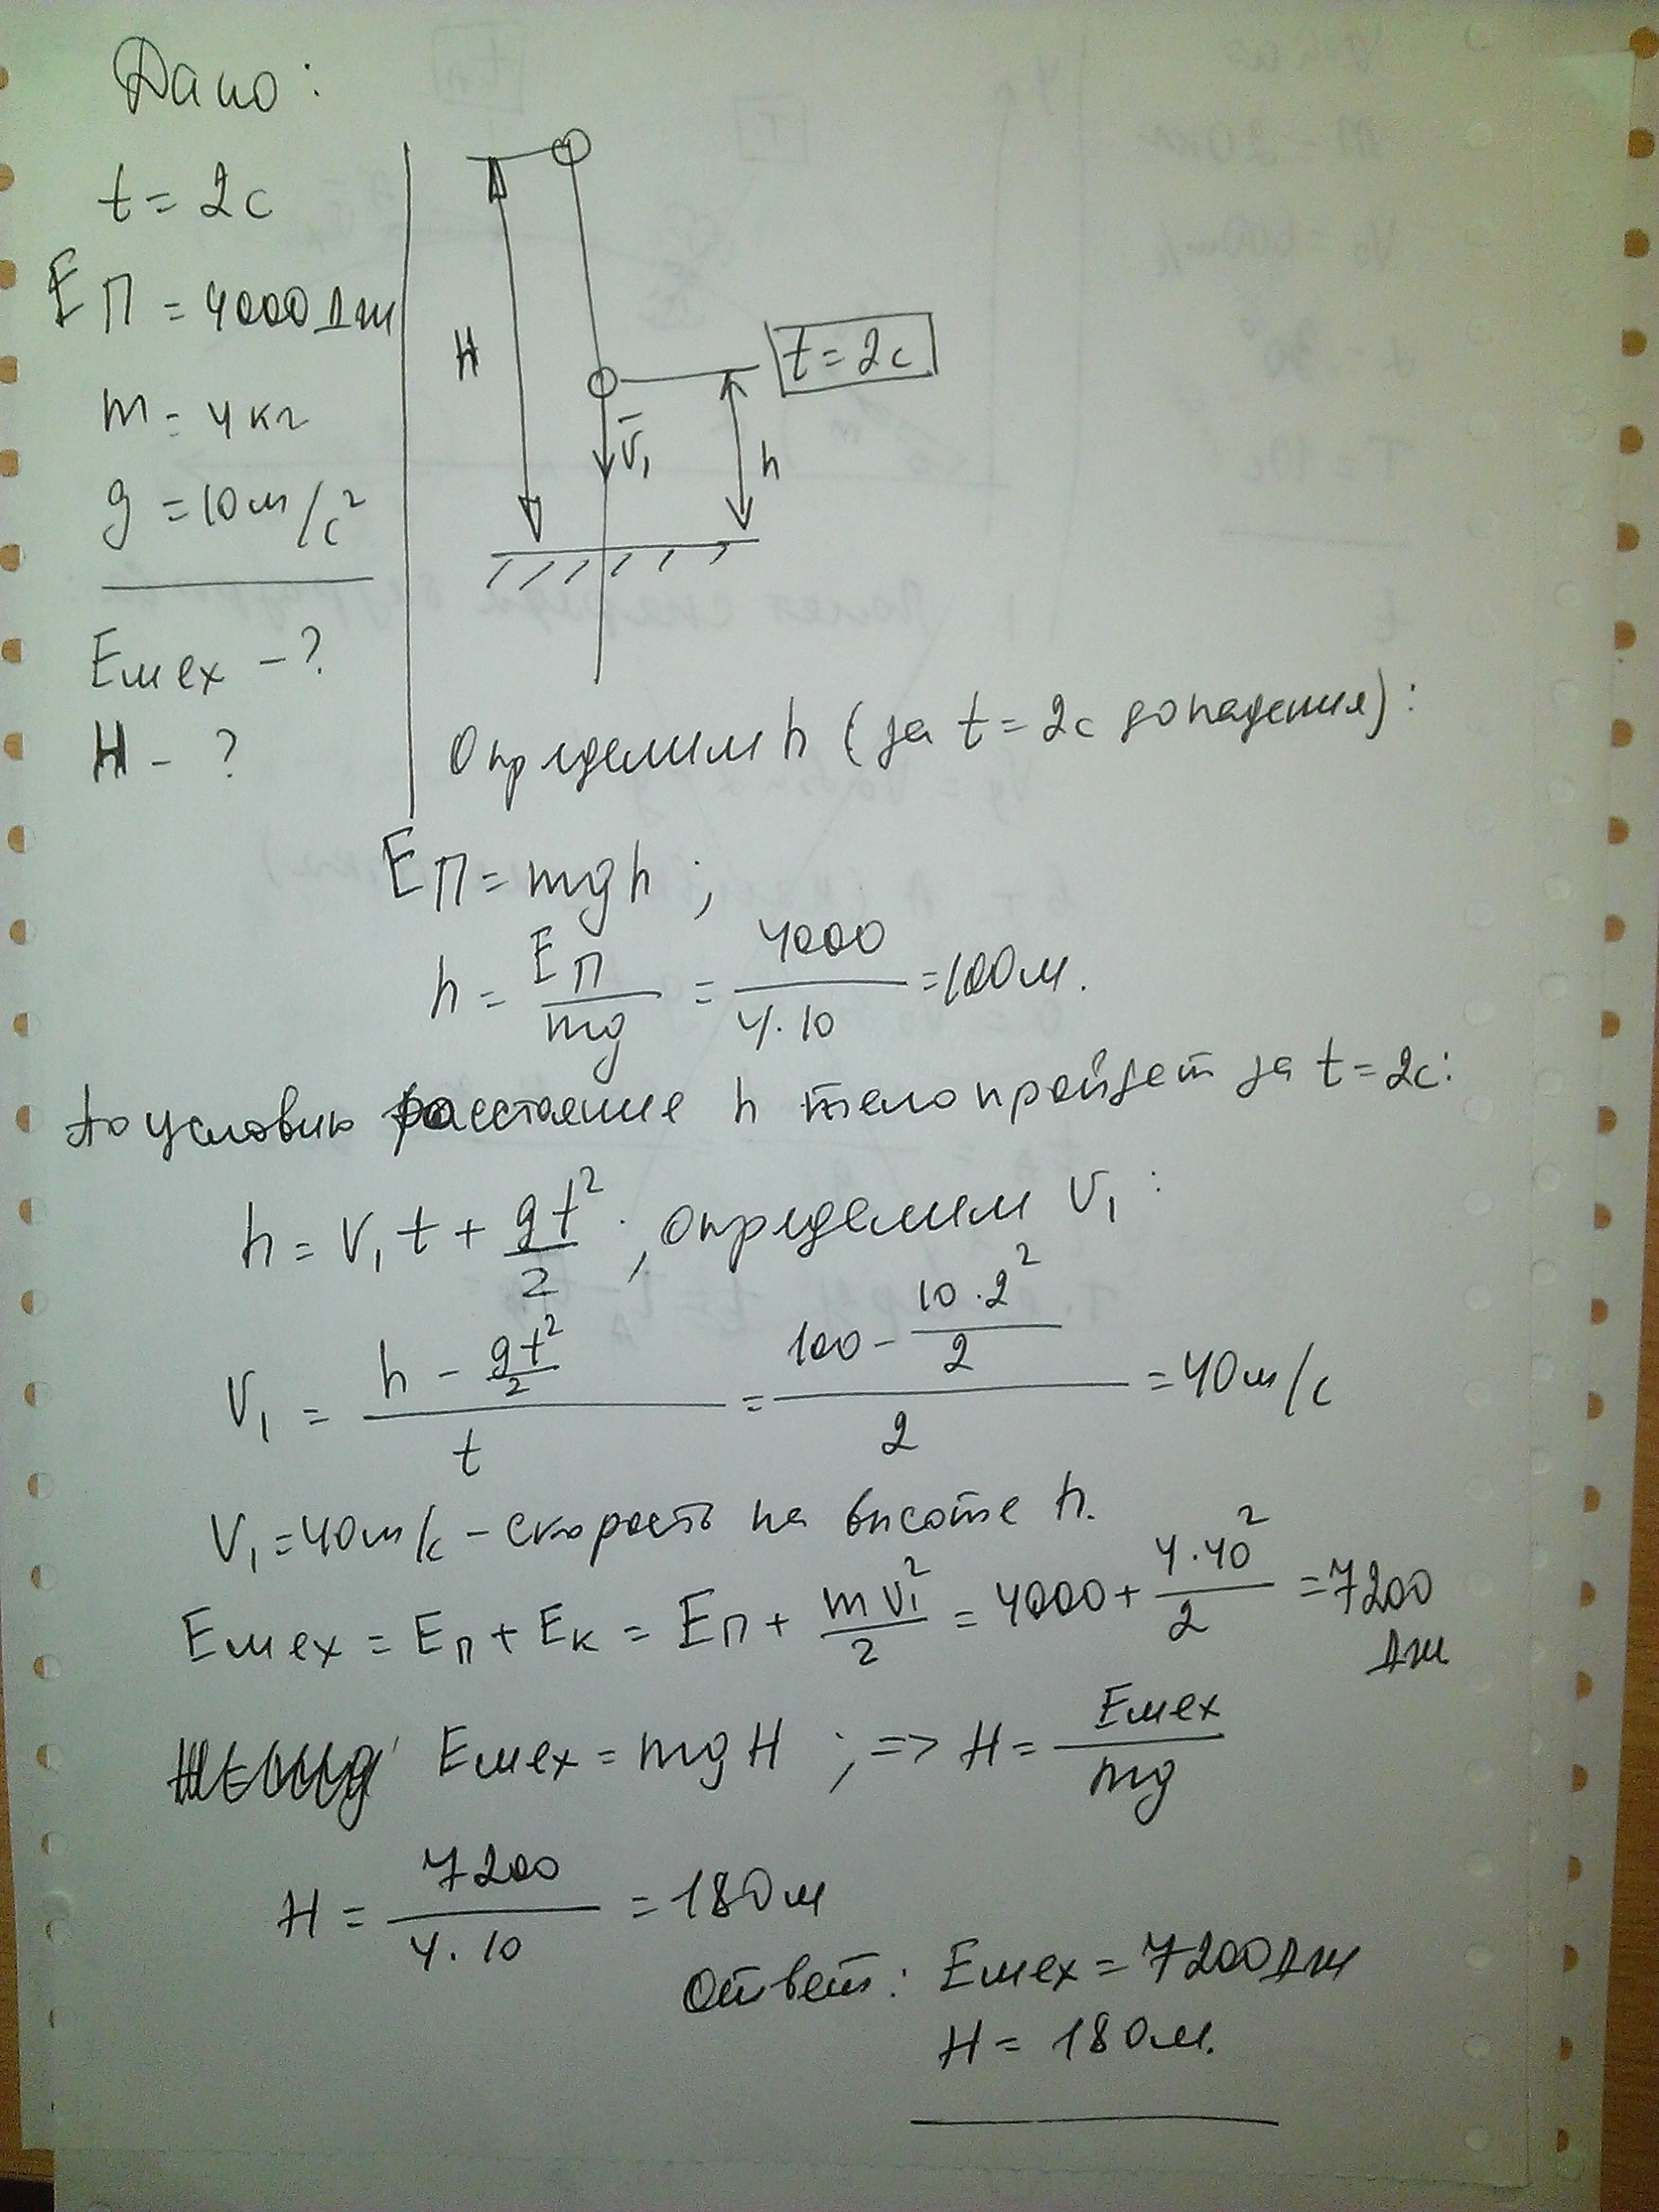 Дано:
t = 2с
Eп = 4000 Дж
m = 4 кг
g = 10 м/с²
Eмех - ?
H - ?
H
t = 2с
v̄₁
h
Определим h (за t = 2с до падения):
Eп = mgh;
h = Eп/mg = 4000/4·10 = 100 м.
По условию расстояние h тело пройдет за t = 2с:
h = V₁t + gt²/2; определим V₁:
V₁ = (h - gt²/2)/t = (100 - 10·2²/2)/2 = 40 м/с
V₁ = 40 м/с - скорость на высоте h.
Eмех = Eп + Eк = Eп + mv₁²/2 = 4000 + 4·40²/2 = 7200 Дж
Eмех = mgH; => H = Eмех/mg
H = 7200/4·10 = 180 м
Ответ: Eмех = 7200 Дж
H = 180 м.